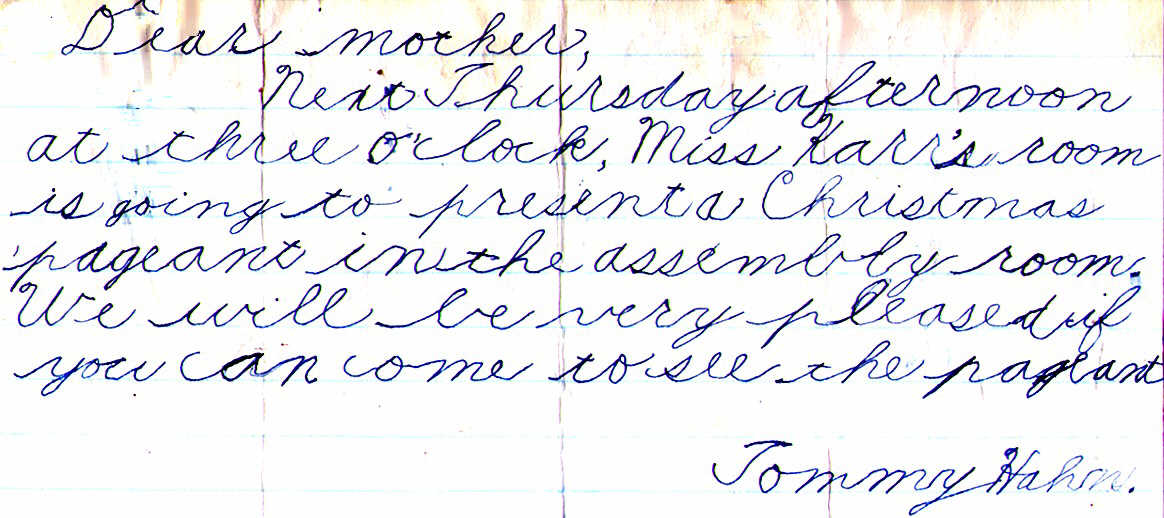 Dear mother,
Next Thursday afternoon
at three o'clock, Miss Karr's room
is going to present a Christmas
pageant in the assembly room.
We will be very pleased if
you can come to see the pageant
Tommy Hahn.